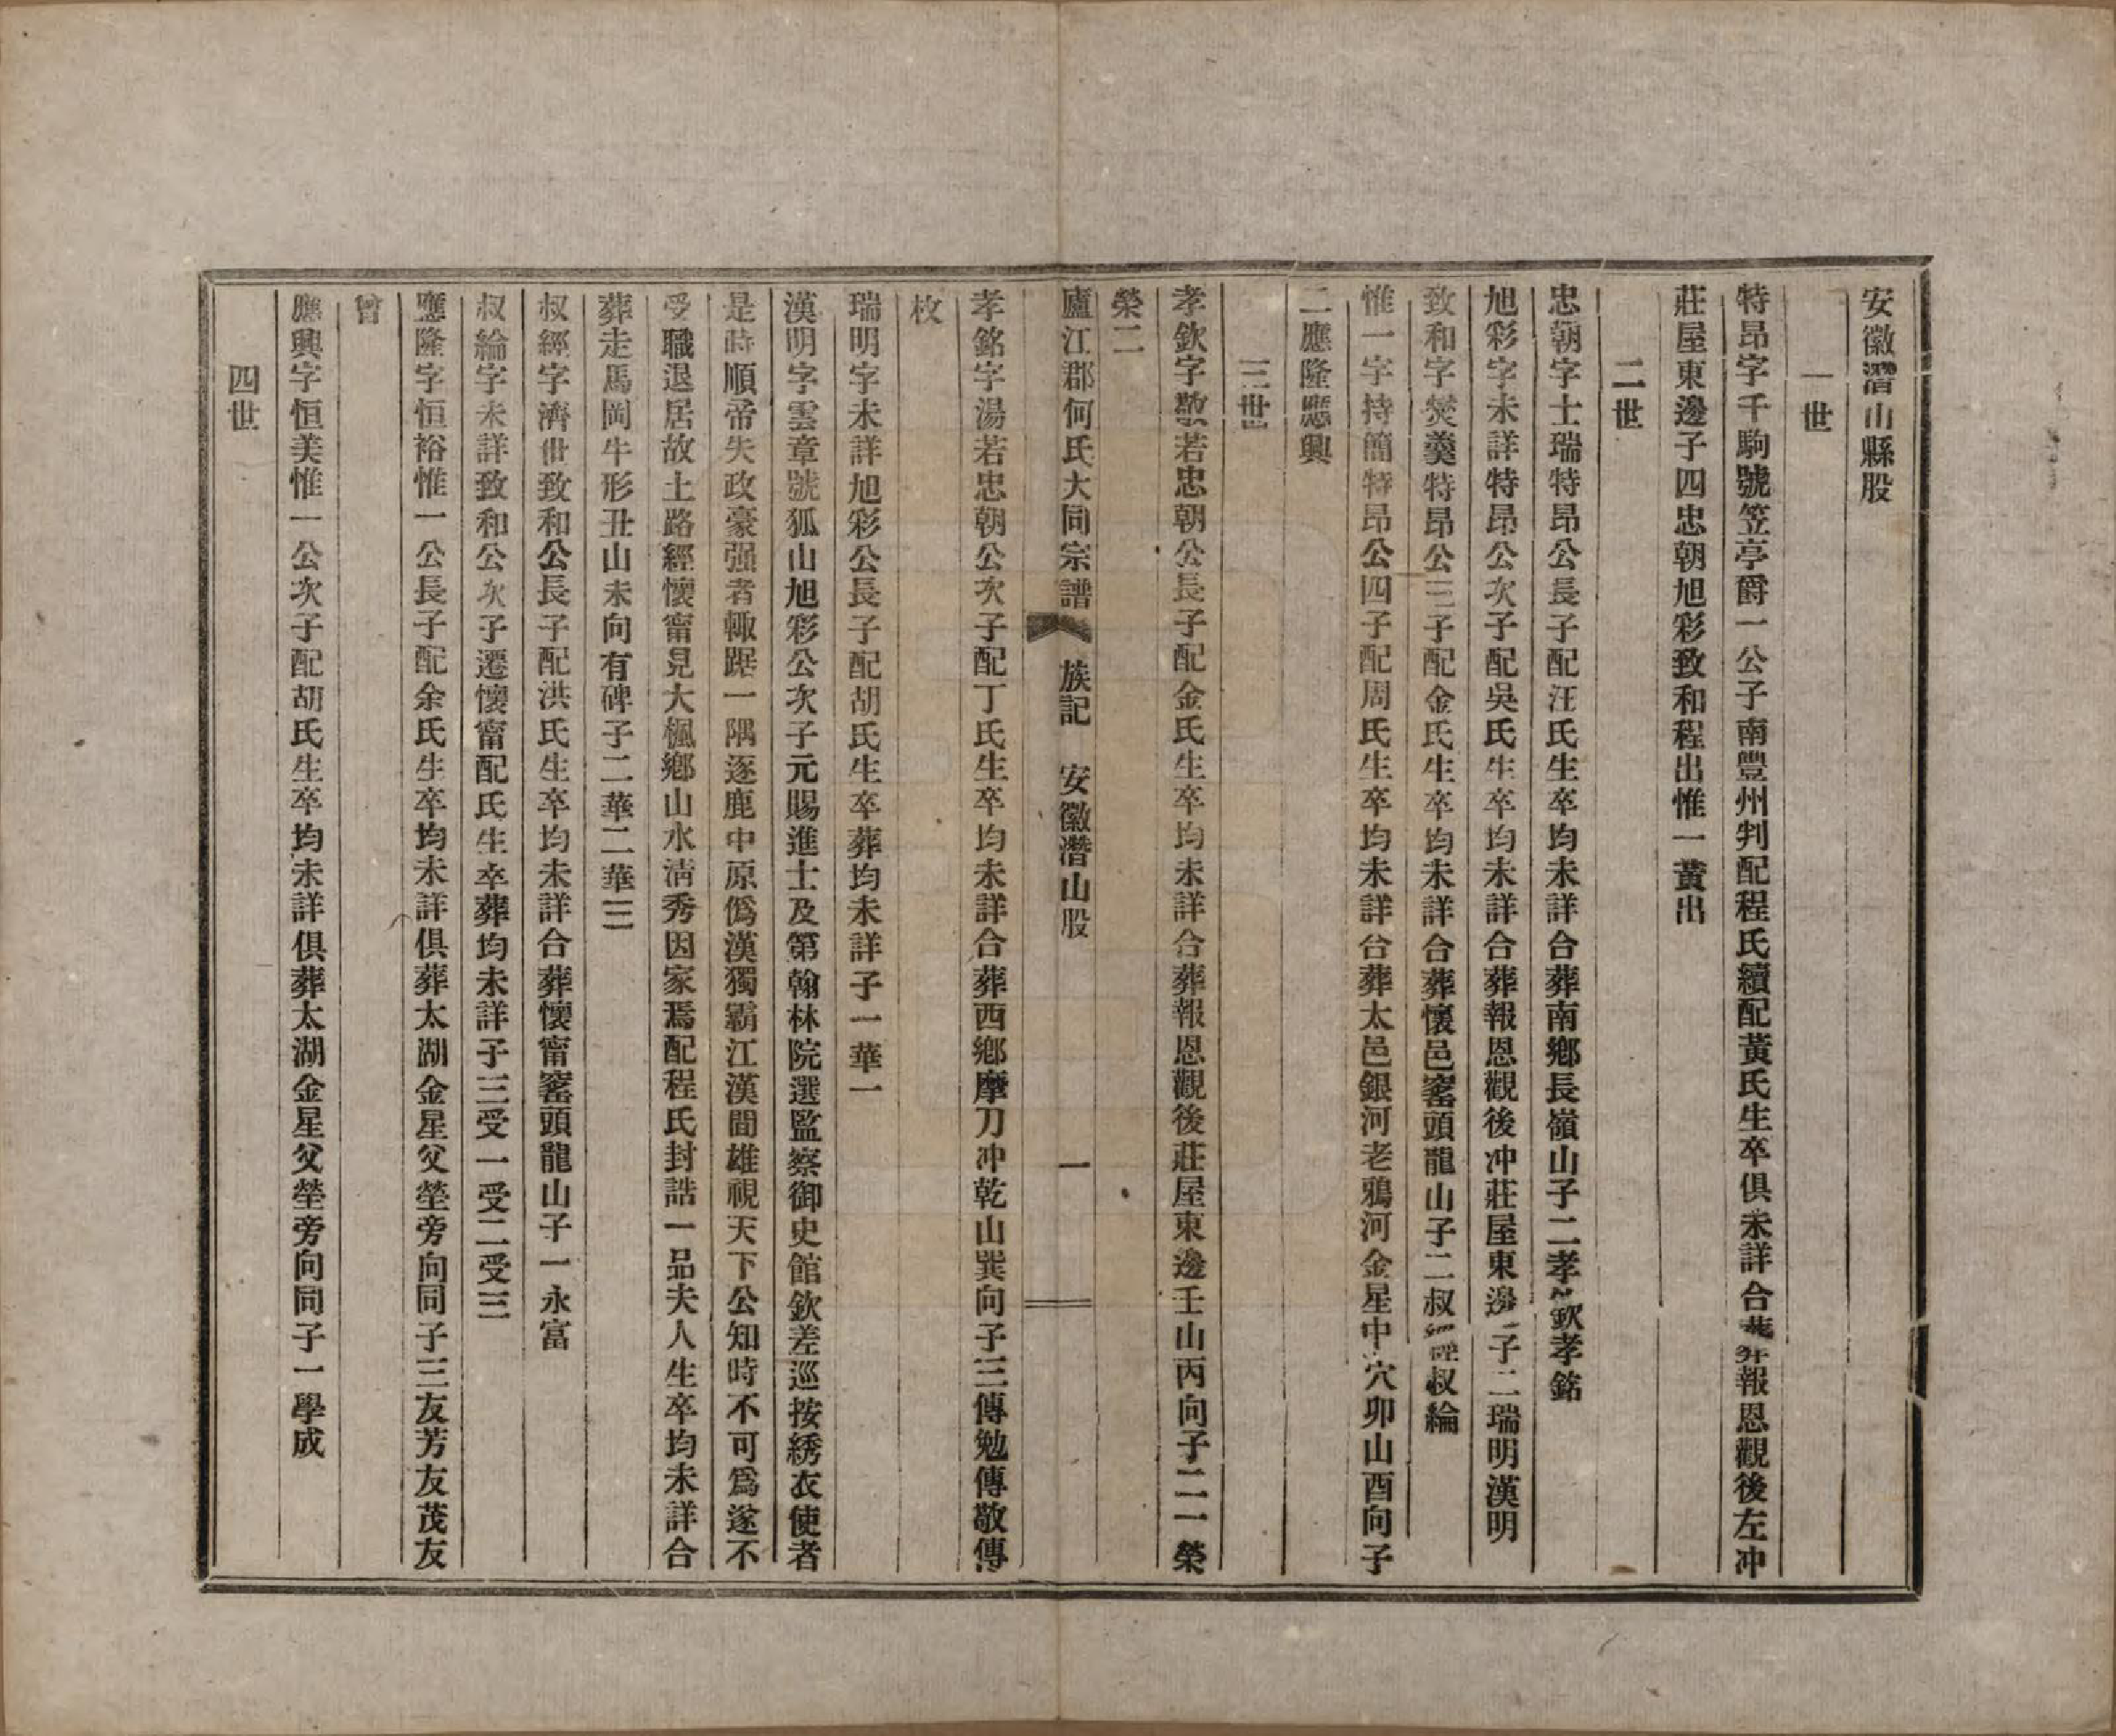 安徽潛山縣股
一世
特昂字千駒號笠亭爵一公子南豐州判配程氏續配黃氏生卒俱未詳合葬報恩觀後左冲
莊屋東邊子四忠朝旭彩致和程出惟一黃出
二世
忠朝字士瑞特昂公長子配汪氏生卒均未詳合葬南鄉長嶺山子二孝欽孝銘
旭彩字未詳特昂公次子配吳氏生卒均未詳合葬報恩觀後冲莊屋東邊子二瑞明漢明
致和字爕羹特昂公三子配金氏生卒均未詳合葬懷邑窰頭龍山子二叔經叔綸
惟一字持簡特昂公四子配周氏生卒均未詳合葬太邑銀河老鴉河金星中穴卯山酉向子
二應隆應興
三世
孝欽字敬若忠朝公長子配金氏生卒均未詳合葬報恩觀後莊屋東邊壬山丙向子二一榮
榮二
廬江郡何氏大同宗譜 族記 安徽潛山股 一
孝銘字湯若忠朝公次子配丁氏生卒均未詳合葬西鄉摩刀冲乾山巽向子三傳勉傳敬傳
枚
瑞明字未詳旭彩公長子配胡氏生卒葬均未詳子一華一
漢明字雲章號狐山旭彩公次子元賜進士及第翰林院選監察御史館欽差巡按綉衣使者
是時順帝失政豪强者輙踞一隅逐鹿中原僞漢獨霸江漢間雄視天下公知時不可爲遂不
受職退居故土路經懷甯見大楓鄉山水淸秀因家焉配程氏封誥一品夫人生卒均未詳合
葬走馬岡牛形丑山未向有碑子二華二華三
叔經字濟世致和公長子配洪氏生卒均未詳合葬懷甯窰頭龍山子一永富
叔綸字未詳致和公次子遷懷甯配氏生卒葬均未詳子三受一受二受三
應隆字恒裕惟一公長子配余氏生卒均未詳俱葬太湖金星父塋旁向同子三友芳友茂友
曾
應興字恒美惟一公次子配胡氏生卒均未詳俱葬太湖金星父塋旁向同子一學成
四世